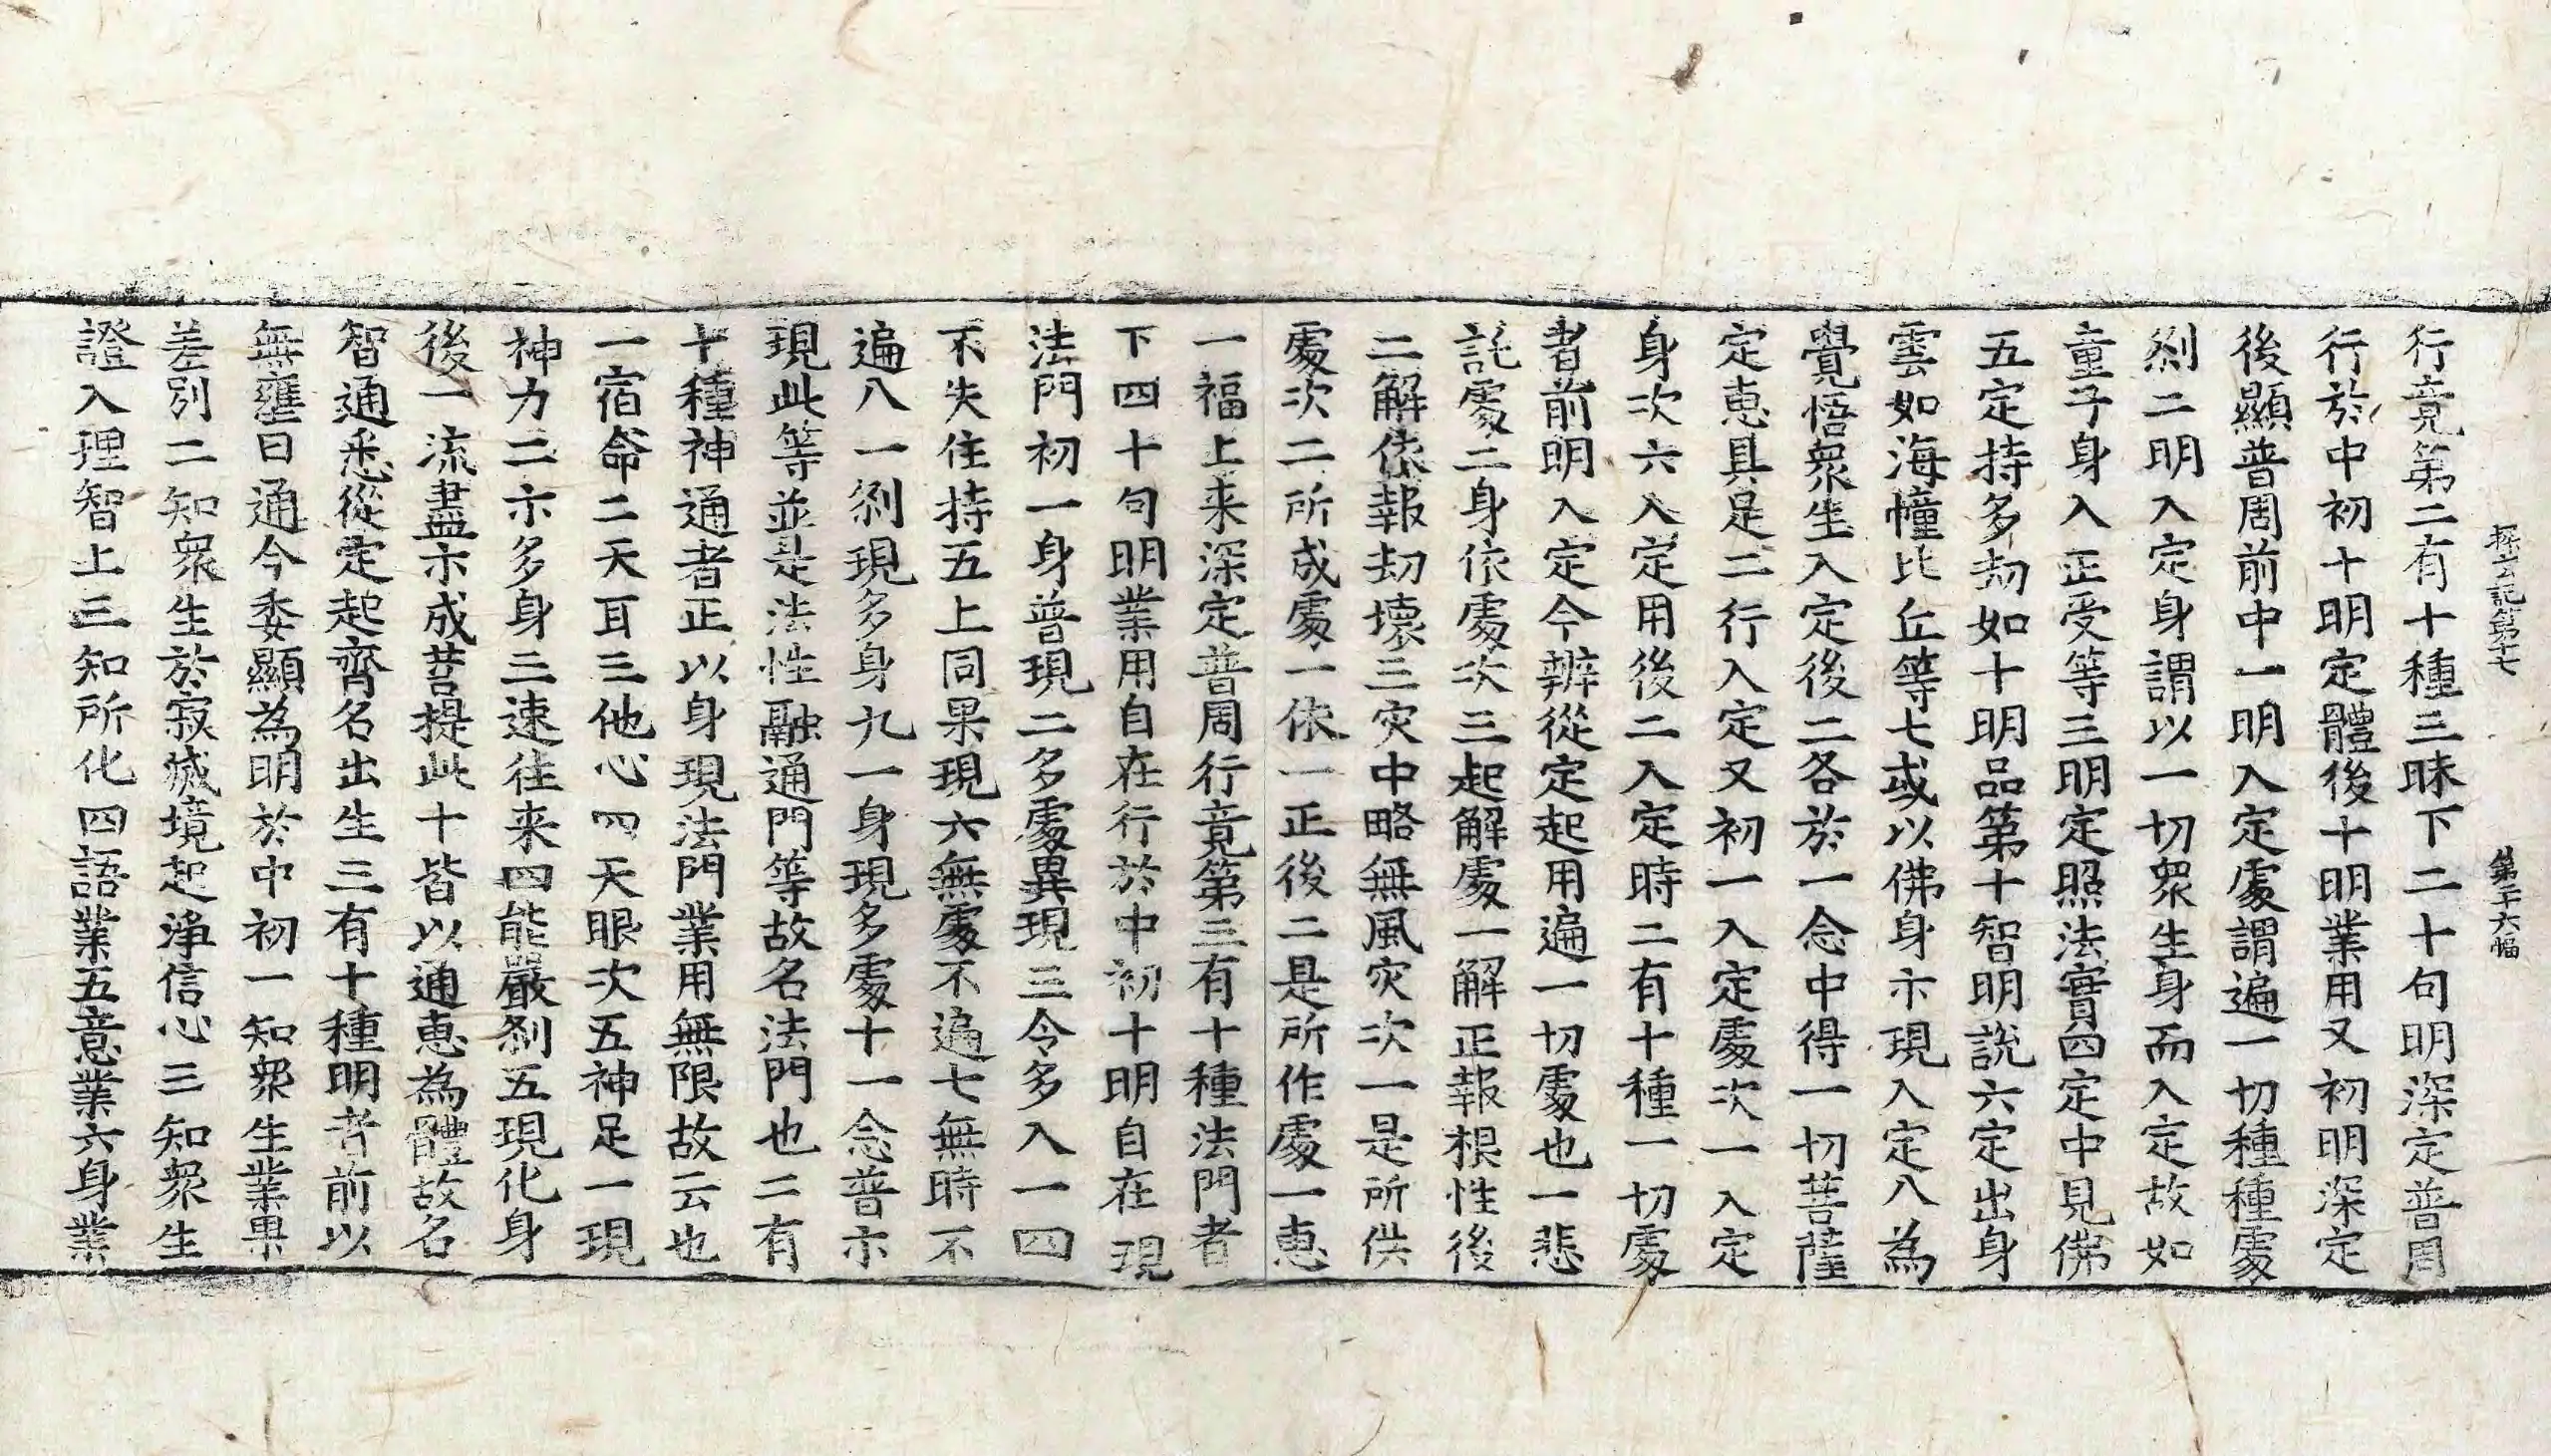 探玄記第十七　第二十六幅
行竟第二有十種三昧下二十句明深定普周
行於中初十明定體後十明業用又初明深定
後顯普周前中一明入定處謂遍一切種種處
刹二明入定身謂以一切衆生身而入定故如
童子身入正受等三明定照法實四定中見佛
五定持多劫如十明品第十智明說六定出身
雲如海幢比丘等七或以佛身示現入定八為
覺悟衆生入定後二各於一念中得一切菩薩
定恵具足二行入定又初一入定處次一入定
身次六入定用後二入定時二有十種一切處
者前明入定今辨從定起用遍一切處也一悲
託處二身依處次三起解處一解正報根性後
二解依報劫壞三灾中略無風灾次一是所供
處次二所成處一依一正後二是所作處一恵
一福上来深定普周行竟第三有十種法門者
下四十句明業用自在行於中初十明自在現
法門初一身普現二多處異現三令多入一四
不失住持五上同果現六無處不遍七無時不
遍八一刹現多身九一身現多處十一念普示
現此等並是法性融通門等故名法門也二有
十種神通者正以身現法門業用無限故云也
一宿命二天耳三他心四天眼次五神足一現
神力二示多身三速徃来四能嚴刹五現化身
後一流盡示成菩提此十皆以通恵為體故名
智通悉從定起齊名出生三有十種明者前以
無壅曰通今委顯為明於中初一知衆生業果
差別二知衆生於寂滅境起淨信心三知衆生
證入理智上三知所化四語業五意業六身業